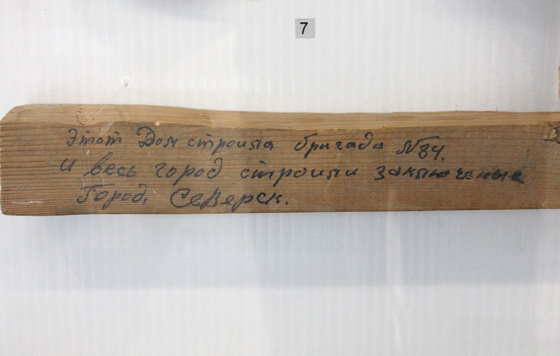 7
Этот Дом строила бригада №84.
и весь город строили заключеные
Город. Северск.